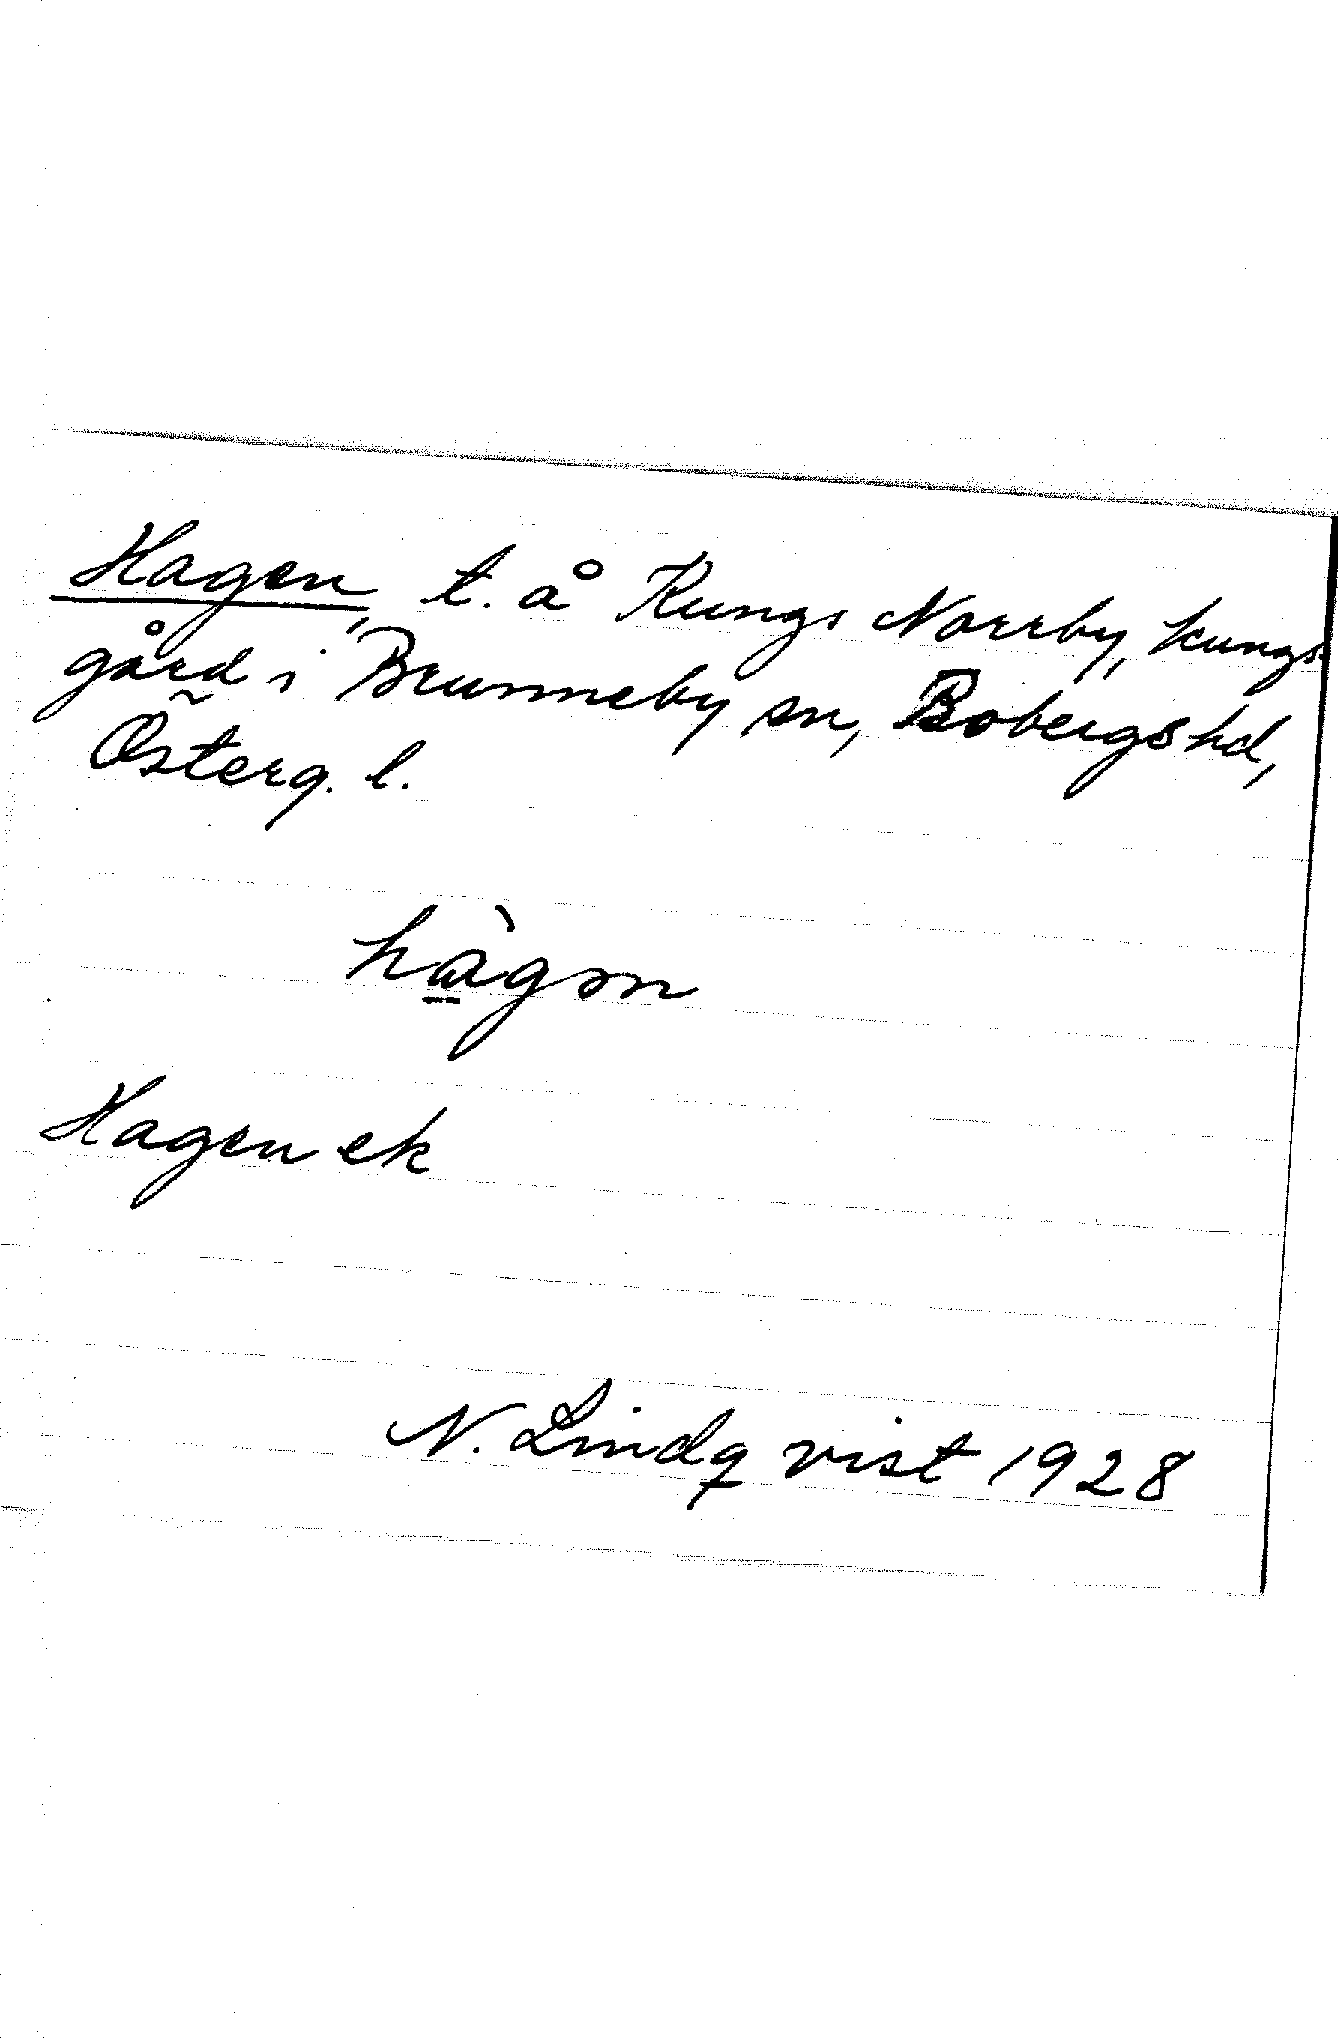 Hagen, t. å Kungs Norrby, kungs-
gård i Brunneby sn, Bobergs hd,
Österg. l.
hàgən
Hagen ek
N. Lindqvist 1928